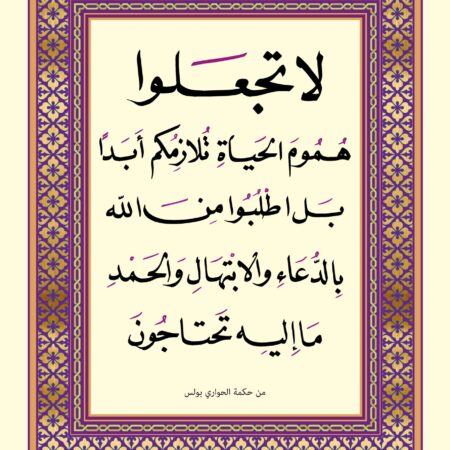 لا تجعلوا
هُمُومَ الحَياةِ تُلازِمُكم أَبَدًا
بَل اطْلُبُوا مِنَ الله
بِالدُّعَاءِ وَالابْتِهَالِ وَالحَمْدِ
مَا إِليهِ تَحتاجُونَ
من حكمة الحواري بولس